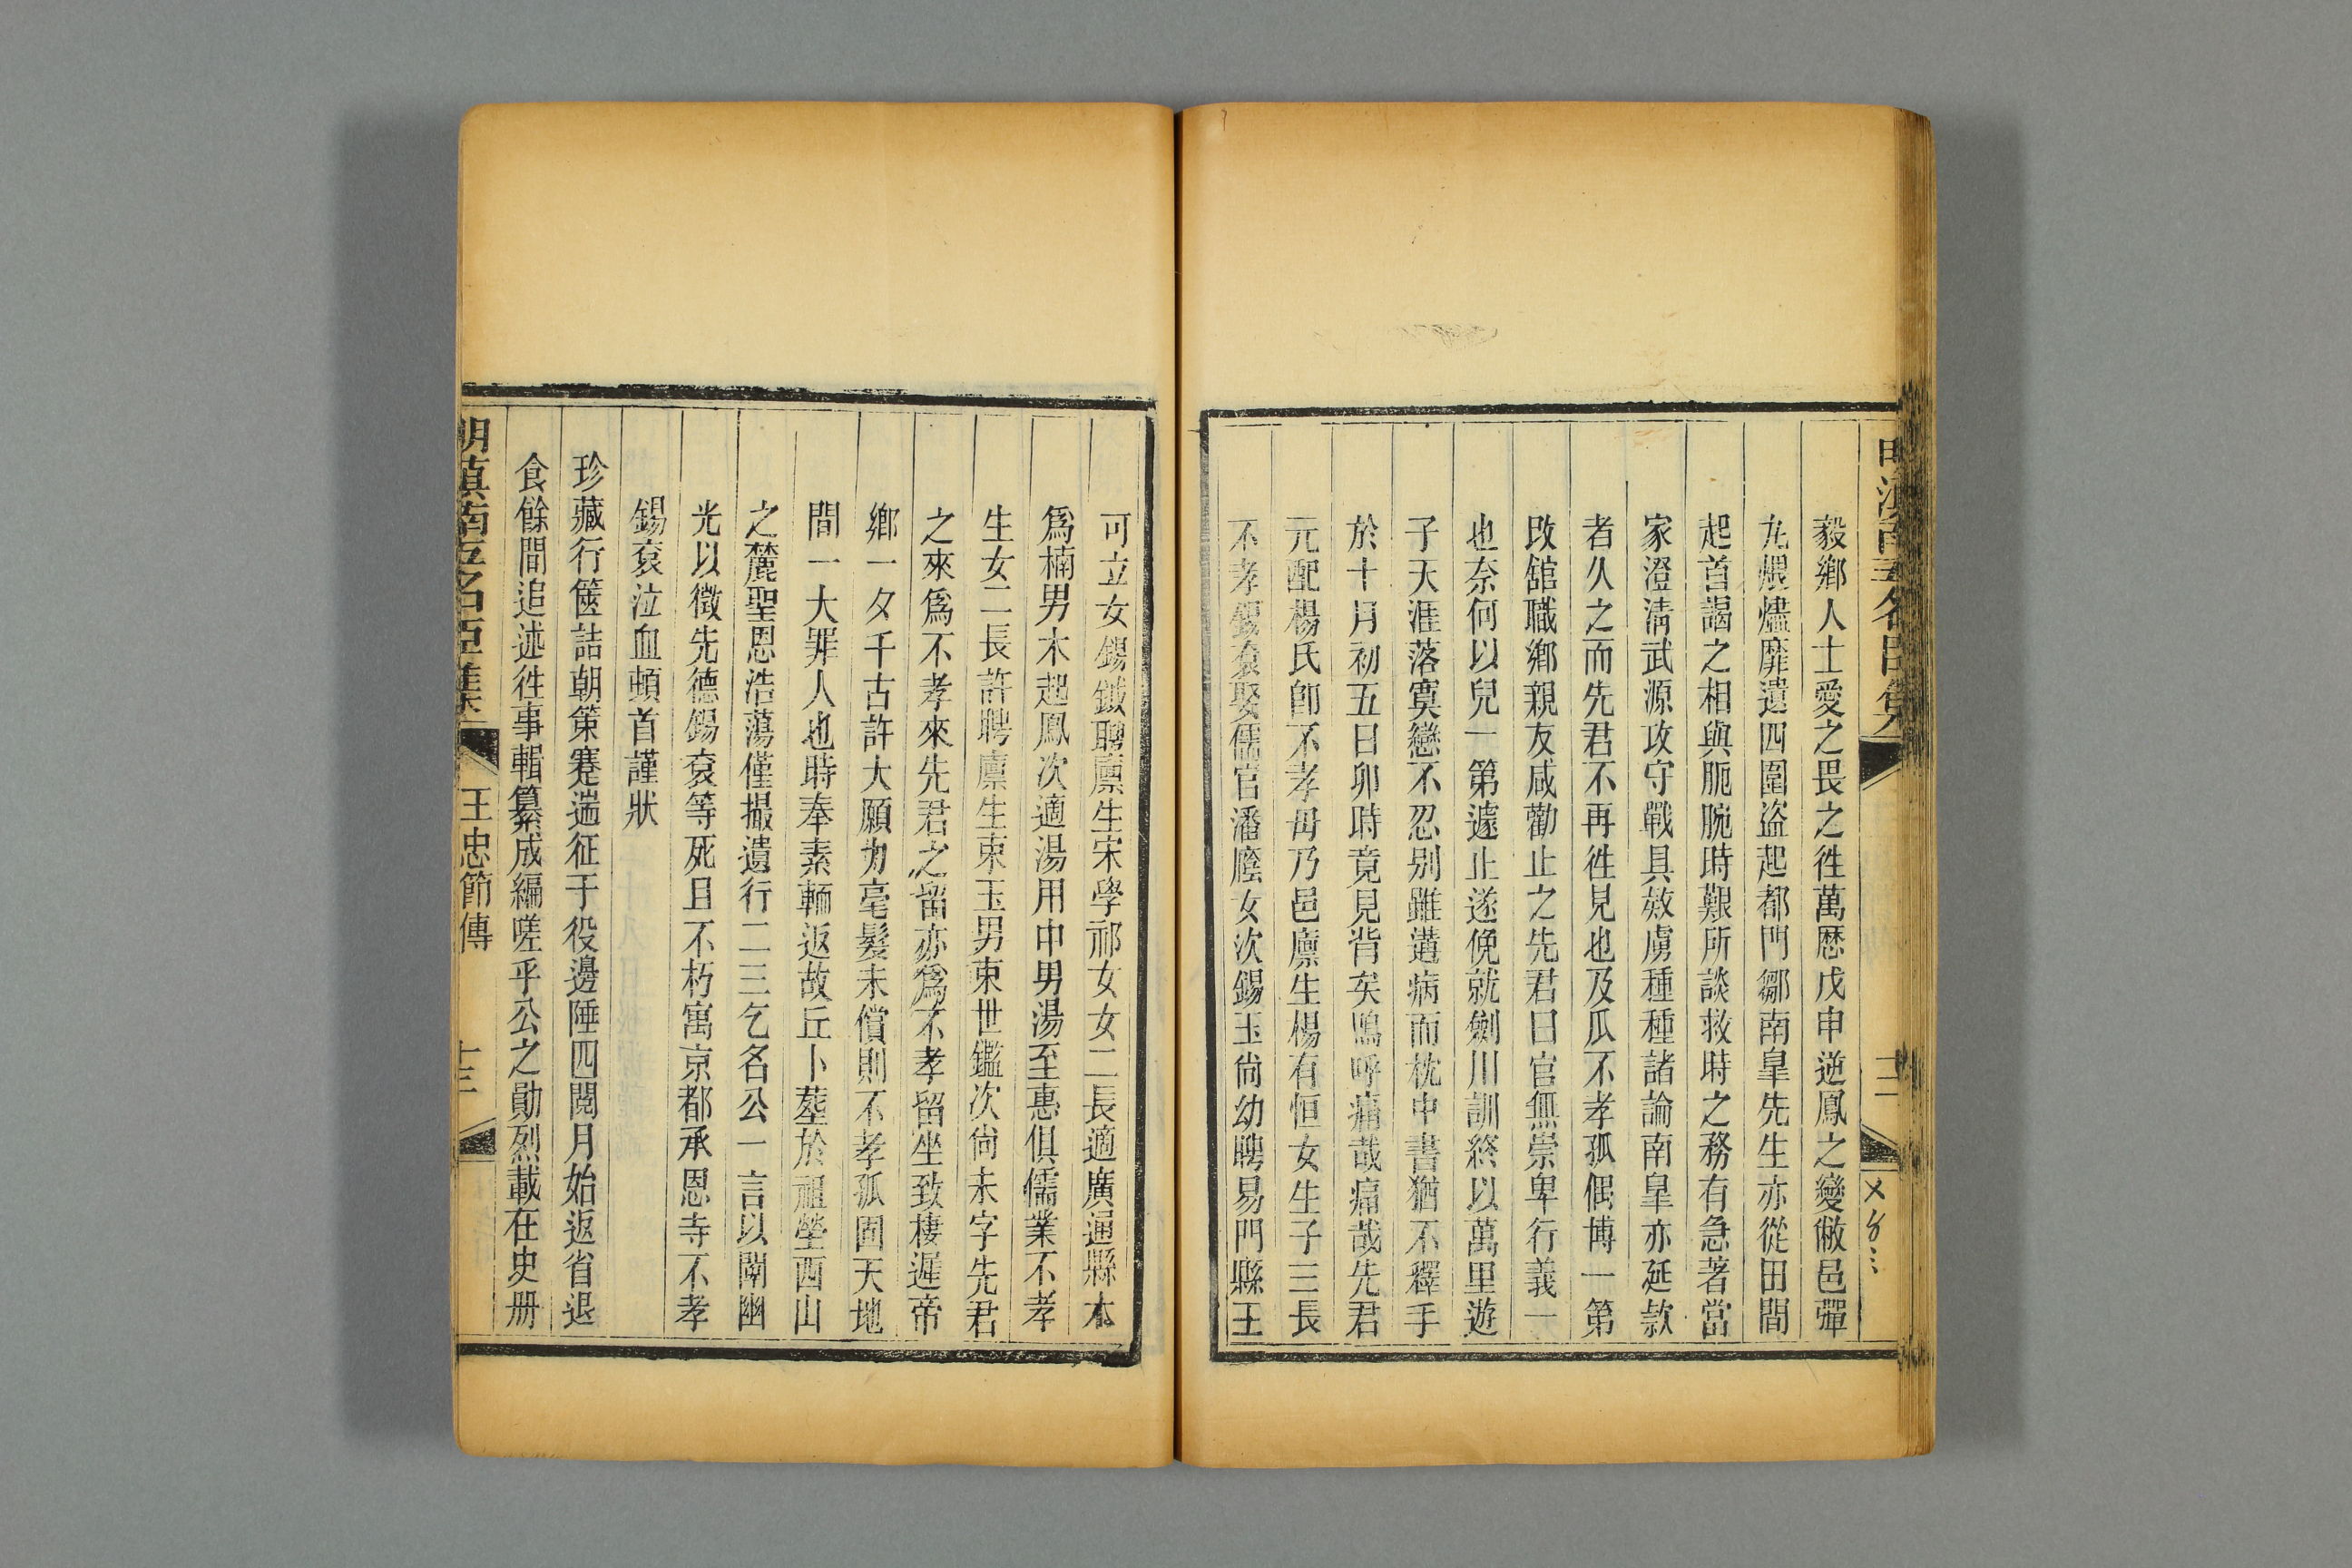 明滇南五名臣集
十二
毅鄉人士愛之畏之徃萬厯戊申逆鳳之變敝邑彈
丸煨燼靡遺四圍盜起都門鄒南皐先生亦從田間
起首謁之相與扼腕時艱所談救時之務有急著當
家澄清武源攻守戰具效虜種種諸論南皐亦延款
者久之而先君不再徃見也及瓜不孝孤偶博一第
改舘職鄉親友咸勸止之先君曰官無崇卑行義一
也奈何以兒一第遽止遂俛就劍川訓終以萬里遊
子天涯落寞戀不忍别雖遘病而枕中書猶不釋手
於十月初五日卯時竟見背矣嗚呼痛哉痛哉先君
元配楊氏卽不孝毋乃邑廪生楊有恒女生子三長
不孝錫衮娶儒官潘廕女次錫玉尙幼聘易門縣王
可立女錫鉞聘廪生宋學祁女女二長適廣通縣木
爲楠男木起鳳次適湯用中男湯至惠俱儒業不孝
生女二長許聘廪生束玉男束世鑑次尙未字先君
之來爲不孝來先君之留亦爲不孝留坐致棲遲帝
鄉一夕千古許大願力毫髮未償則不孝孤固天地
間一大罪人也時奉素輀返故丘卜塟於祖塋西山
之麓聖恩浩蕩僅撮遺行二三乞名公一言以闡幽
光以徵先德錫衮等死且不朽寓京都承恩寺不孝
錫衮泣血頓首謹狀
珍藏行篋詰朝策蹇遄征于役邊陲四閱月始返省退
食餘間追述徃事輯纂成編嗟乎公之勛烈載在史册
明滇南五名臣集
王忠節傳
十三